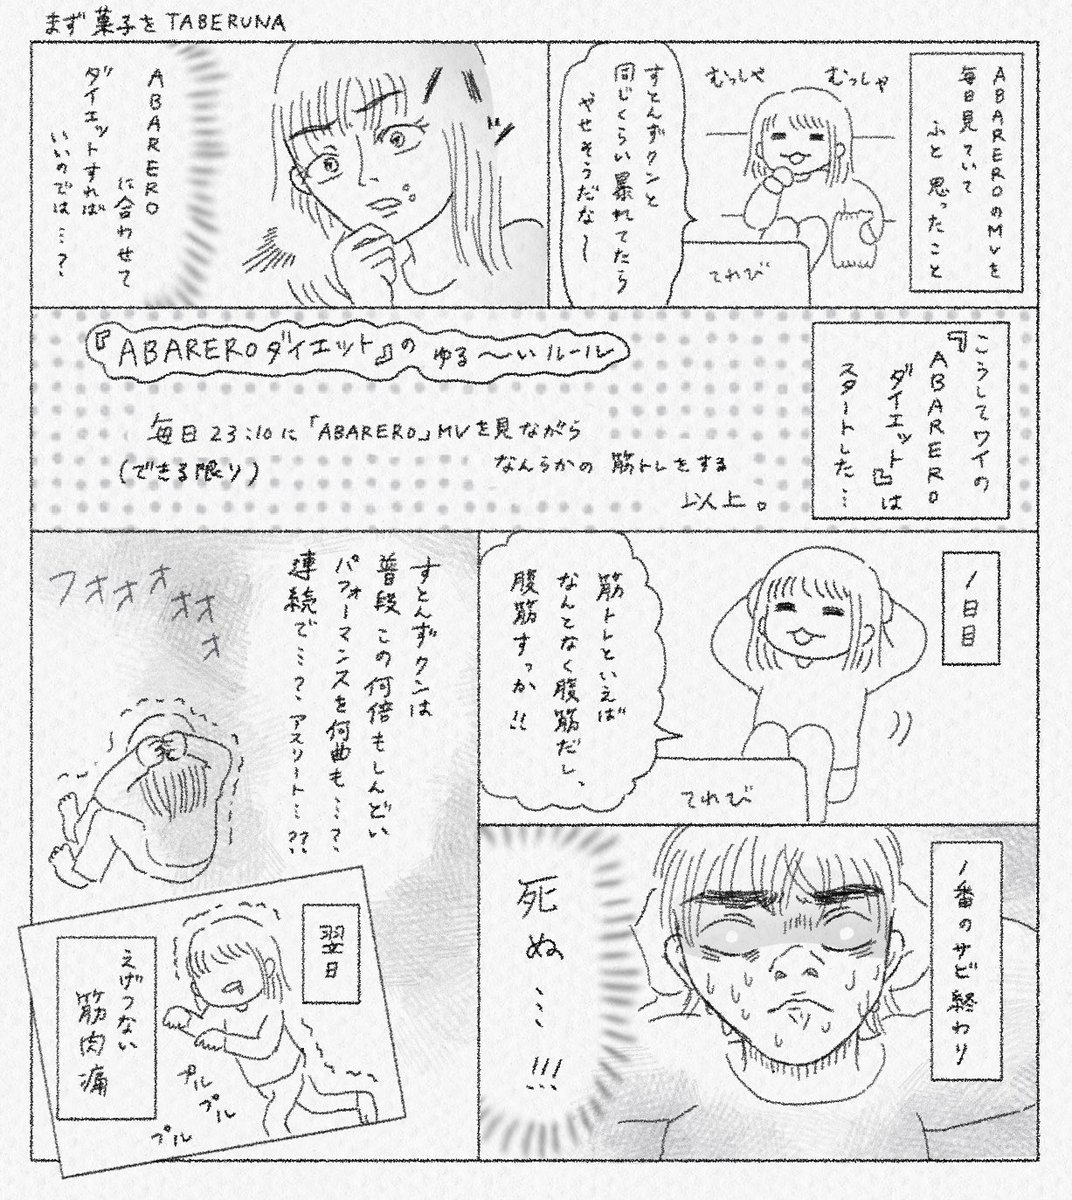 まず菓子をTABERUNA
ABAREROのMVを
毎日見ていて
ふと思ったこと
むっしゃ
むっしゃ
てれび
すとんずクンと
同じくらい暴れてたら
やせそうだな〜
ABARERO
に合わせて
ダイエットすれば
いいのでは…?
こうしてワイの
『ABARERO
ダイエット』は
スタートした…
『ABAREROダイエット』の ゆる〜いルール
毎日23:10に「ABARERO」MVを見ながら
(できる限り)
なんらかの筋トレをする
以上。
1日目
筋トレといえば
なんとなく腹筋だし、
腹筋すっか!!
てれび
1番のサビ終わり
死ぬ…!!!
すとんずクンは
普段この何倍もしんどい
パフォーマンスを何曲も…?
連続で…?アスリート…??
フオオオオオオ
翌日
えげつない
筋肉痛
プル
プル
プル